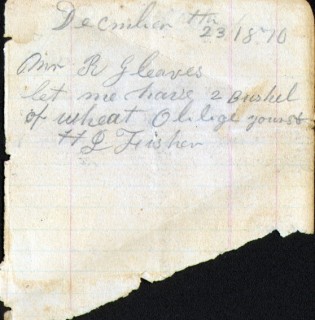 December th 23 1870
Mr R Gleaves
let me have 2 Bushel
of wheat Oblige yours
H L Fisher